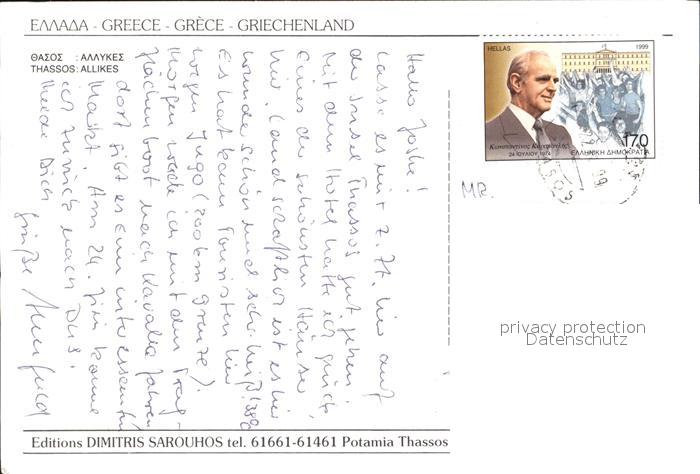 ΕΛΛΑΔΑ - GREECE - GRÈCE - GRIECHENLAND
ΘΑΣΟΣ : ΑΛΛΥΚΕΣ
THASSOS: ALLIKES
HELLAS
1999
Κωνσταντίνος Καραμανλής
24 ΙΟΥΛΙΟΥ 1974
170
ΕΛΛΗΝΙΚΗ ΔΗΜΟΚΡΑΤΙΑ
MR.
Hallo
lasse es mir z. Zt. hier auf
der Insel Thassos gut gehen.
Mit dem Hotel hatte ich Glück,
eines der schönsten Häuser
hier. Landschaftlich ist es hier
wunderschön und schön heiß (38°)
Es hat kaum Touristen hier
wegen Jugo (200 km Grenze).
Morgen werde ich mit dem Trag-
flächenboot nach Kavalla fahren
dort gibt es ein interessanten
Markt. Am 24. komme
ich zurück nach Dus.
Melde Dich
Grüße
privacy protection
Datenschutz
Editions DIMITRIS SAROUHOS tel. 61661-61461 Potamia Thassos